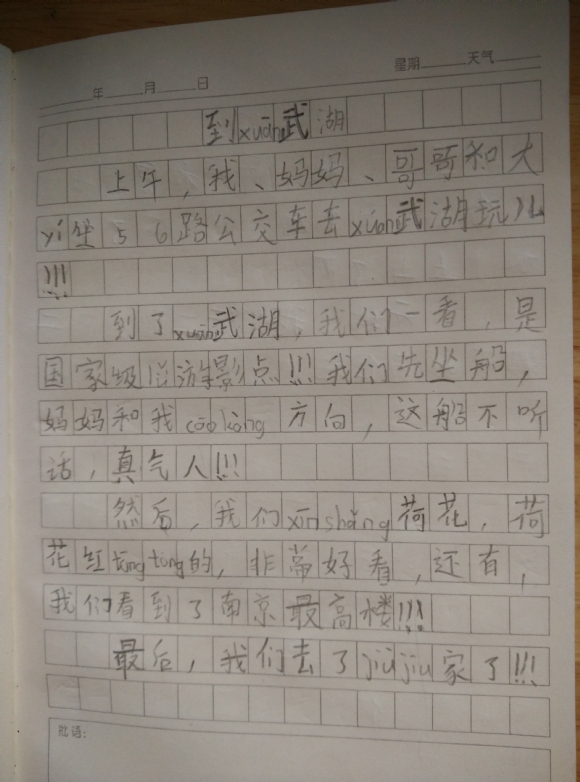 星期 天气
年 月 日
到xuán武湖
上午，我、妈妈、哥哥和大
yí坐56路公交车去xuán武湖玩儿
!!!
到了xuán武湖，我们一看，是
国家级 点!!!我们先坐船，
妈妈和我cāo kòng方向，这船不听
话，真气人!!!
然后，我们xīn shǎng荷花，荷
花红tōng tōng的，非常好看，还有，
我们看到了南京最高楼!!!
最后，我们去了jiù jiu家了!!!
批语：